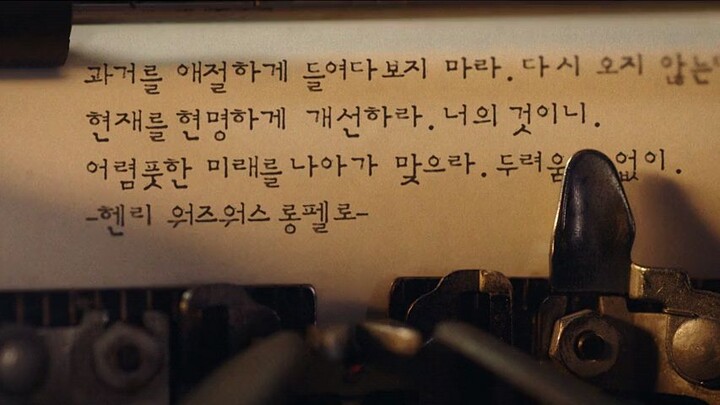 과거를 애절하게 들여다보지 마라. 다시 오지 않는
현재를 현명하게 개선하라. 너의 것이니.
어렴풋한 미래를 나아가 맞으라. 두려움 없이.
-헨리 워즈워스 롱펠로-